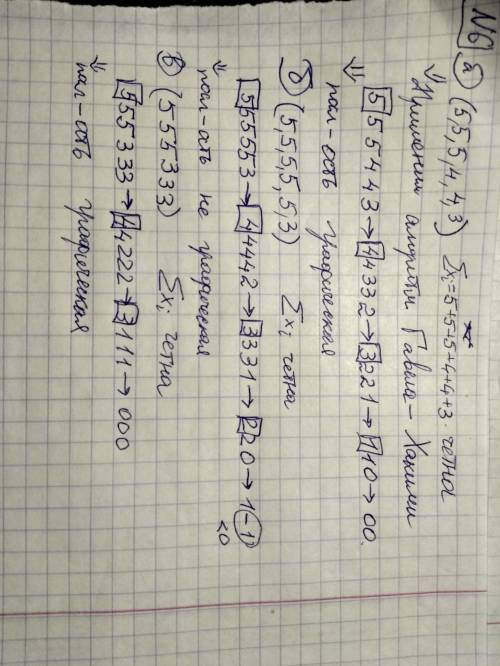 №6 а) (5,5,5,4,4,3) Σxᵢ=5+5+5+4+4+3 - четна
⇒ Применим алгоритм Гавела-Хакими
5 5 5 4 4 3 → 4 4 3 3 2 → 3 2 2 1 → 1 1 0 → 0 0.
⇒ пол-ость графическая
б) (5,5,5,5,5,3) Σxᵢ четна
5 5 5 5 5 3 → 4 4 4 4 2 → 3 3 3 1 → 2 2 0 → 1 -1 <0
⇒ пол-ость не графическая
в) (5 5 5 3 3 3) Σxᵢ четна
5 5 5 3 3 3 → 4 4 2 2 2 → 3 1 1 1 → 0 0 0
⇒ пол-ость графическая